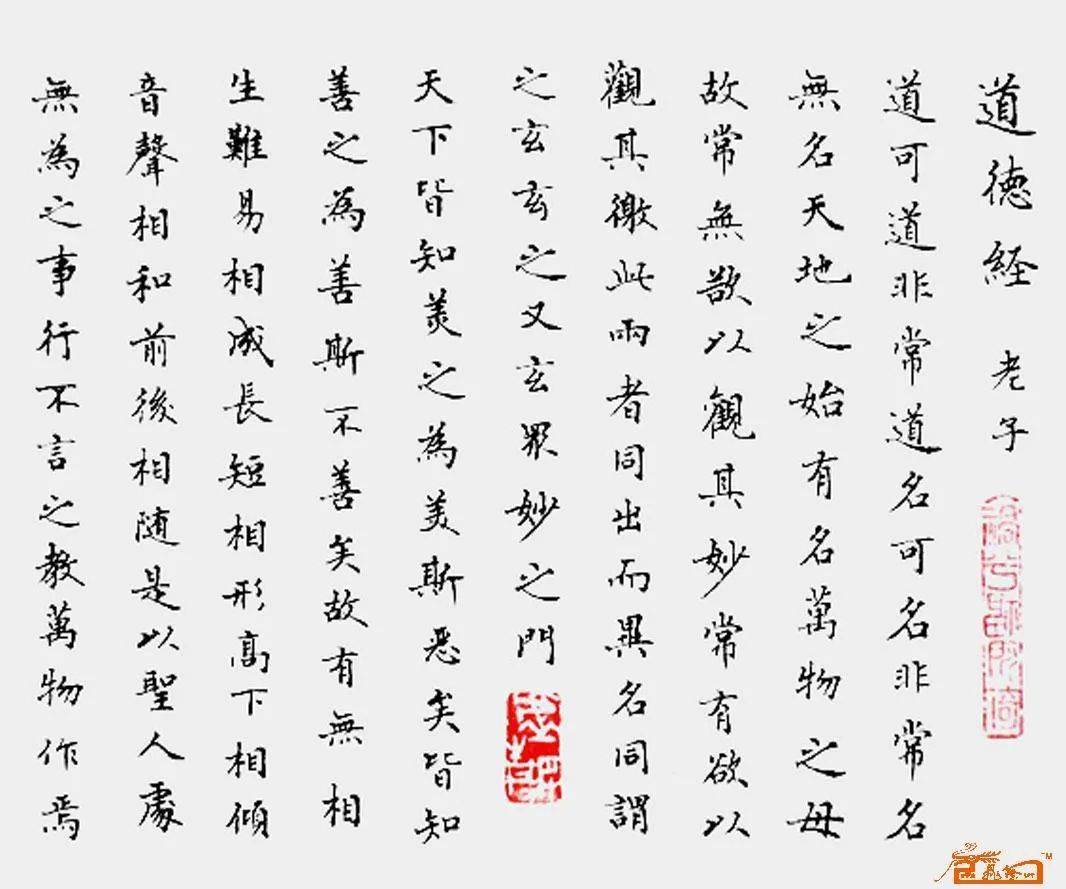 道德経 老子
道可道非常道名可名非常名
無名天地之始有名萬物之母
故常無欲以觀其妙常有欲以
觀其徼此兩者同出而異名同謂
之玄玄之又玄眾妙之門
天下皆知美之為美斯恶矣皆知
善之為善斯不善矣故有無相
生難易相成長短相形高下相傾
音聲相和前後相随是以聖人處
無為之事行不言之教萬物作焉